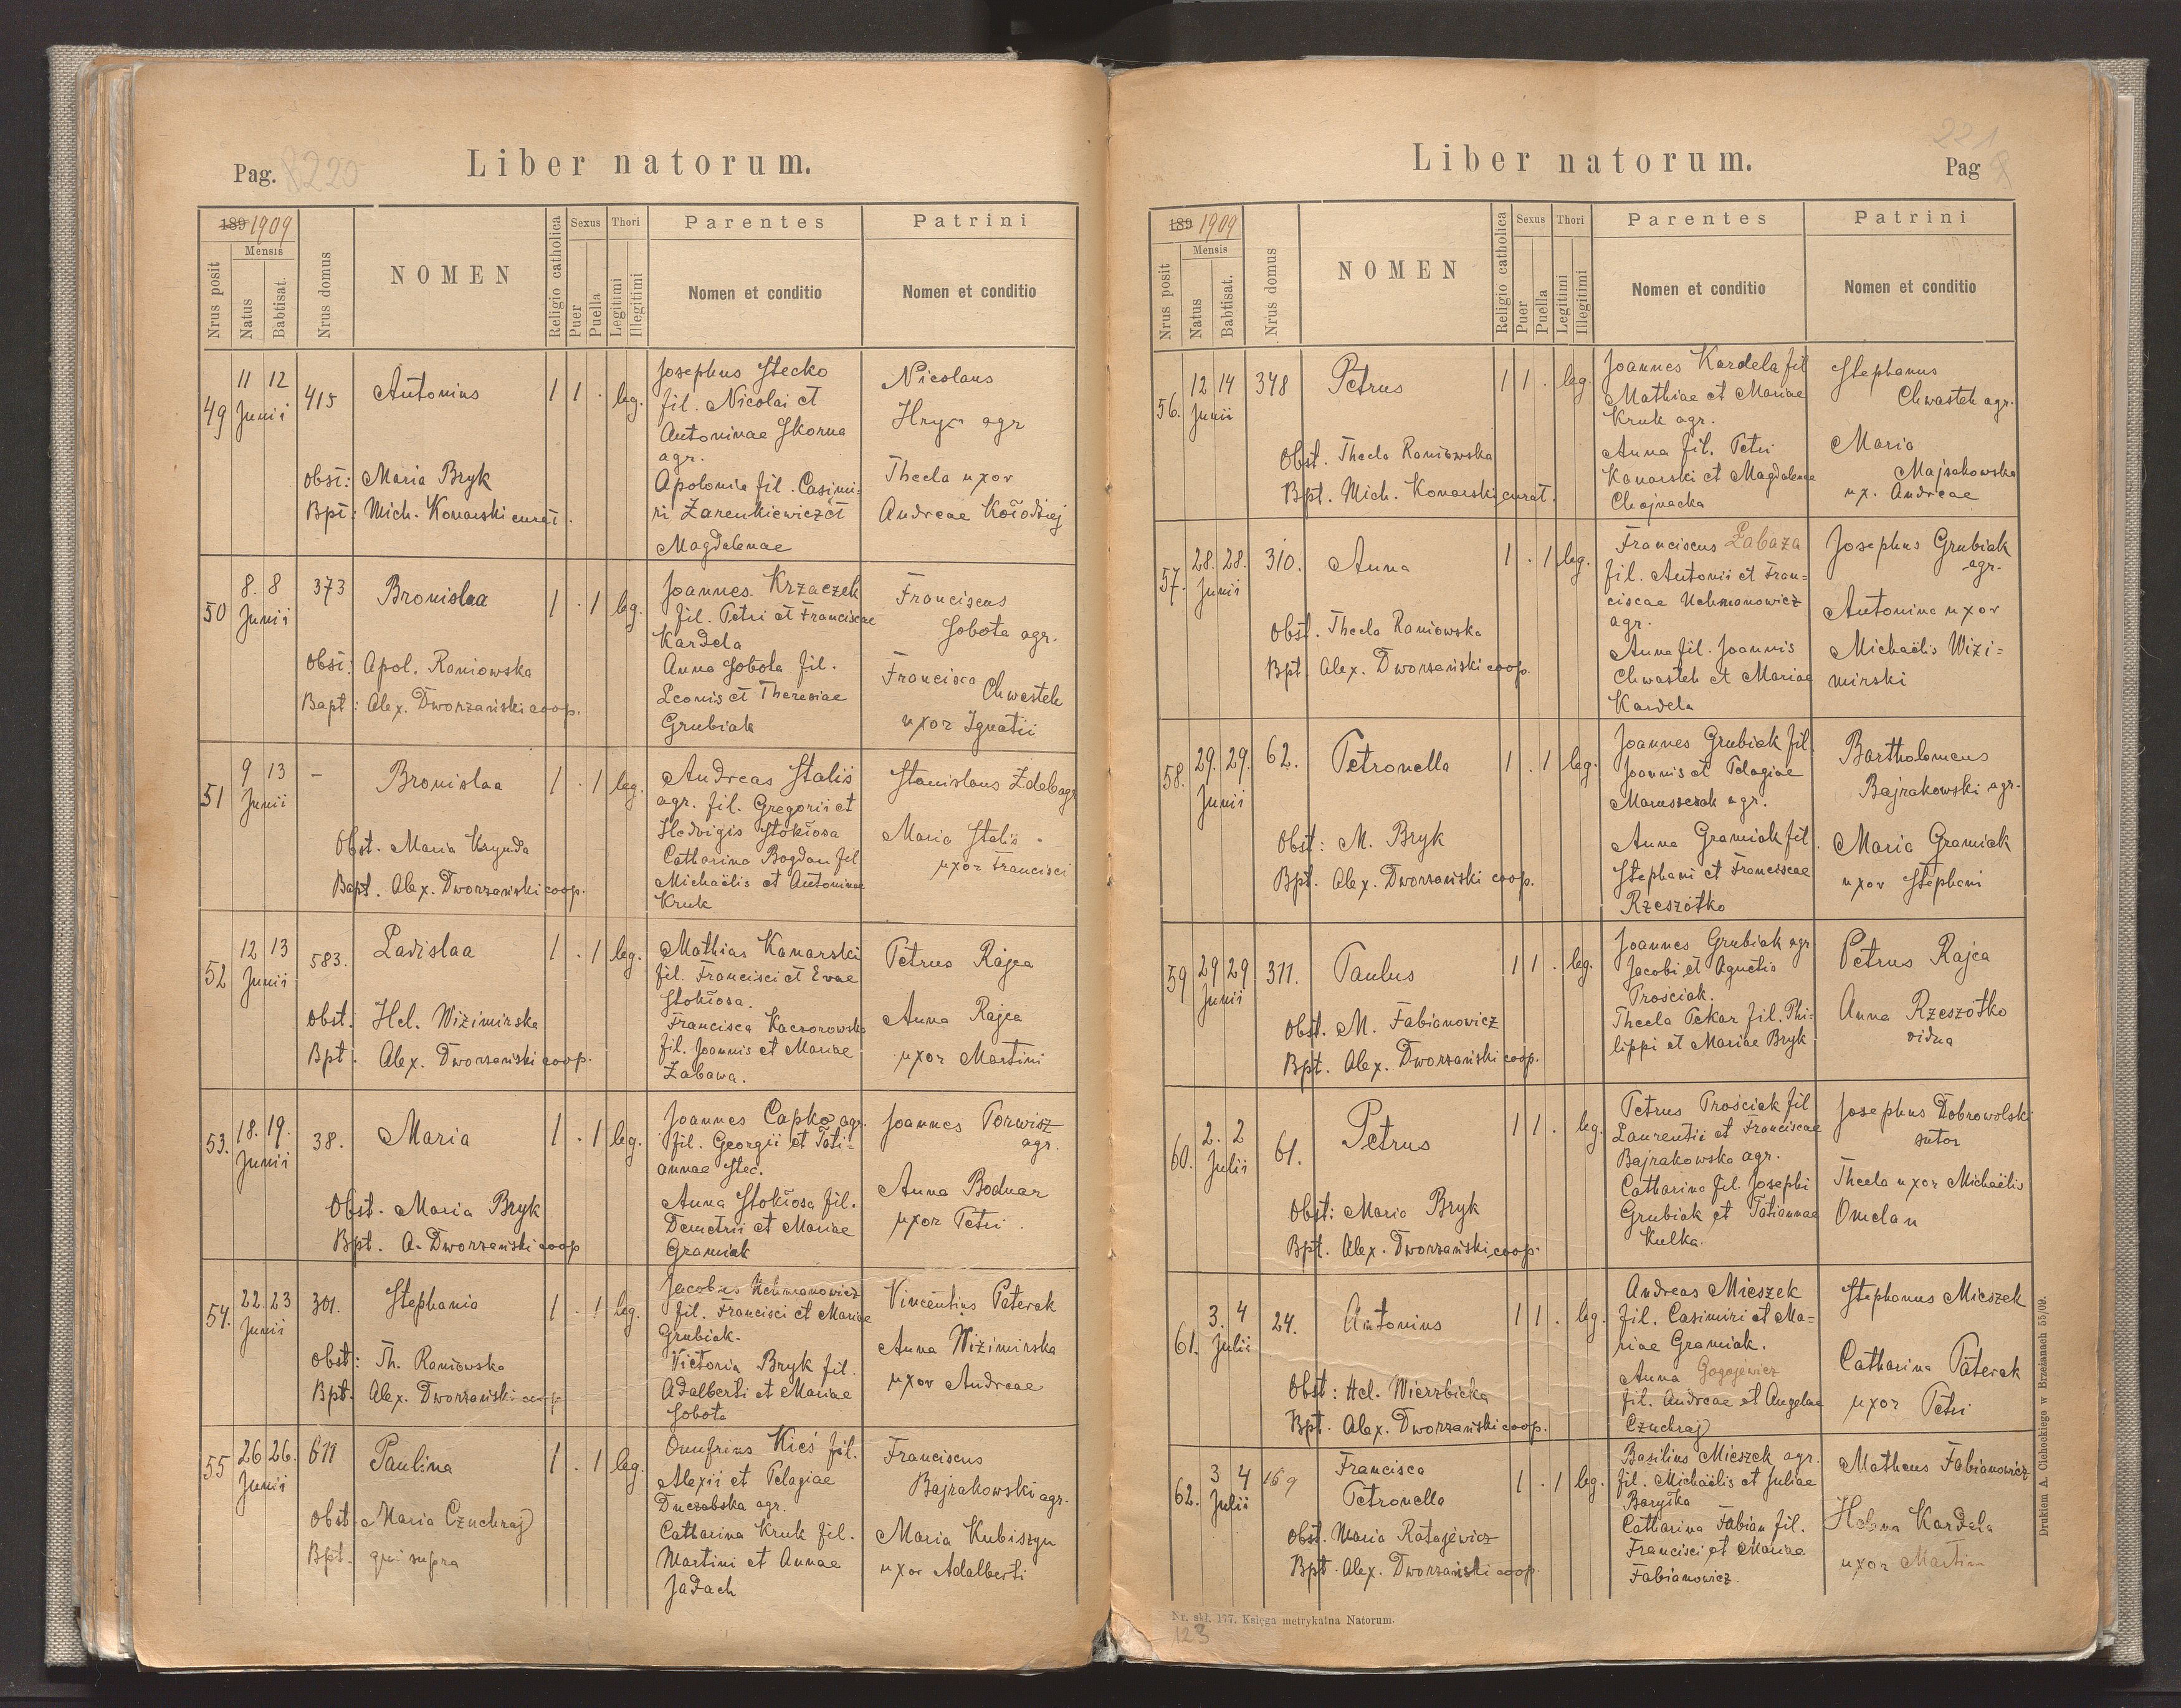 Pag. 220
Liber natorum.
189 1909
Nrus posit
Mensis
Natus
Babtisat.
Nrus domus
NOMEN
Religio catholica
Sexus
Puer
Puella
Thori
Legitimi
Illegitimi
Parentes
Nomen et conditio
Patrini
Nomen et conditio
49
11 12
Junii
415
Antonius
1 1 . leg.
Josephus Stecko
fil. Nicolai et
Antoninae Skorna
agr.
Apolonia fil. Casimi-
ri Zarenkiewicz et
Magdalenae
Nicolaus
Hryć agr
Thecla uxor
Andreae Kołodziej
Obst: Maria Bryk
Bpt: Mich. Konarski curat.
50
8. 8
Junii
373
Bronislaa
1 . 1 leg.
Joannes Krzaczek
fil. Petri et Franciscae
Kardela
Anna Sobota fil.
Leonis et Theresiae
Grubiak
Franciscus
Sobota agr.
Francisca Chwastek
uxor Ignatii
Obst: Apol. Raniowska
Bapt: Alex. Dworzański coop.
51
9 13
Junii
-
Bronislaa
1 . 1 leg.
Andreas Staliś
agr. fil. Gregorii et
Hedvigis Stokłosa
Catharina Bogdan fil
Michaëlis et Antoninae
Kruk
Stanislaus Zdeb agr
Maria Staliś
uxor Francisci
Obst. Maria Krynda
Bapt. Alex. Dworzański coop.
52
12 13
Junii
583.
Ladislaa
1 . 1 leg.
Mathias Kanarski
fil. Francisci et Evae
Stokłosa.
Francisca Kaczorowska
fil. Joannis et Mariae
Zabawa.
Petrus Rajca
Anna Rajca
uxor Martini
Obst. Hel. Wizimirska
Bpt. Alex. Dworzański coop.
53.
18. 19.
Junii
38.
Maria
1 . 1 leg.
Joannes Capko agr.
fil. Georgii et Tati-
annae Stec.
Anna Stokłosa fil.
Demetrii et Mariae
Gramiak
Joannes Torwisz
agr.
Anna Bodnar
uxor Petri.
Obst. Maria Bryk
Bpt. A. Dworzański coop
54.
22. 23
Junii
301.
Stephania
1 . 1 leg.
Jacobus Uchmanowicz
fil. Francisci et Mariae
Grubiak.
Victoria Bryk fil.
Adalberti et Mariae
Sobota
Vincentius Paterak
Anna Wizimirska
uxor Andreae
Obst: Th. Raniowska
Bpt. Alex. Dworzański coop
55
26 26.
Junii
611
Paulina
1 . 1 leg.
Onufrius Kieś fil.
Alexii et Pelagiae
Duczabska agr.
Catharina Kruk fil.
Martini et Annae
Jadach
Franciscus
Bajrakowski agr.
Maria Kubiszyn
uxor Adalberti
Obst. Maria Czuchraj
Bpt. qui supra
221
Liber natorum.
Pag
189 1909
Nrus posit
Mensis
Natus
Babtisat.
Nrus domus
NOMEN
Religio catholica
Sexus
Puer
Puella
Thori
Legitimi
Illegitimi
Parentes
Nomen et conditio
Patrini
Nomen et conditio
56.
12 14
Junii
348
Petrus
1 1 . leg.
Joannes Kardela fil
Mathiae et Mariae
Kruk agr.
Anna fil. Petri
Kanarski et Magdalenae
Chojnacka
Stephanus
Chwastek agr.
Maria
Majsakowska
ux. Andreae
Obst. Thecla Raniowska
Bpt. Mich. Konarski curat.
57.
28. 28.
Junii
310.
Anna
1 . 1 leg.
Franciscus Zabaza
fil. Antonii et Fran-
ciscae Uchmanowicz
agr.
Anna fil. Joannis
Chwastek et Mariae
Kardela
Josephus Grubiak
agr.
Antonina uxor
Michaëlis Wizi-
mirski
Obst. Thecla Raniowska
Bpt. Alex. Dworzański coop.
58.
29. 29.
Junii
62.
Petronella
1 . 1 leg.
Joannes Grubiak fil.
Joannis et Pelagiae
Marusszczak agr.
Anna Gramiak fil.
Stephani et Franciscae
Rzeszótko
Bartholomeus
Bajrakowski agr.
Maria Gramiak
uxor Stephani
Obst: M. Bryk
Bpt. Alex. Dworzański coop.
59
29 29
Junii
311.
Paulus
1 1 . leg.
Joannes Grubiak agr
Jacobi et Agnetis
Prościak.
Thecla Pekar fil. Phi-
lippi et Mariae Bryk
Petrus Rajca
Anna Rzeszótko
vidua
Obst. M. Fabianowicz
Bpt. Alex. Dworzański coop.
60.
2. 2
Julii
61.
Petrus
1 1 . leg.
Petrus Prościak fil
Laurentii et Franciscae
Bajrakowska agr.
Catharina fil. Josephi
Grubiak et Tatiannae
Kulka.
Josephus Dobrowolski
sutor
Thecla uxor Michaëlis
Omelan
Obst: Maria Bryk
Bpt. Alex. Dworzański coop.
61.
3. 4
Julii
24.
Antonius
1 1 . leg.
Andreas Mieszek
fil. Casimiri et Ma-
riae Gramiak.
Anna Gogojewicz
fil. Andreae et Angelae
Czuchraj
Stephanus Mieszek
Catharina Paterak
uxor Petri
Obst: Hel. Wierzbicka
Bpt. Alex. Dworzański coop.
62.
3 4
Julii
169
Francisca
Petronella
1 . 1 leg.
Basilius Mieszek agr.
fil. Michaëlis et Juliae
Baryłka
Catharina Fabian fil.
Francisci et Mariae
Fabianowicz.
Matheus Fabianowicz
Helena Kardela
uxor Martini
Obst. Maria Ratajewicz
Bpt. Alex. Dworzański coop.
Nr. skł. 177. Księga metrykalna Natorum.
123
Drukiem A. Cichockiego w Brzeżanach 55/09.